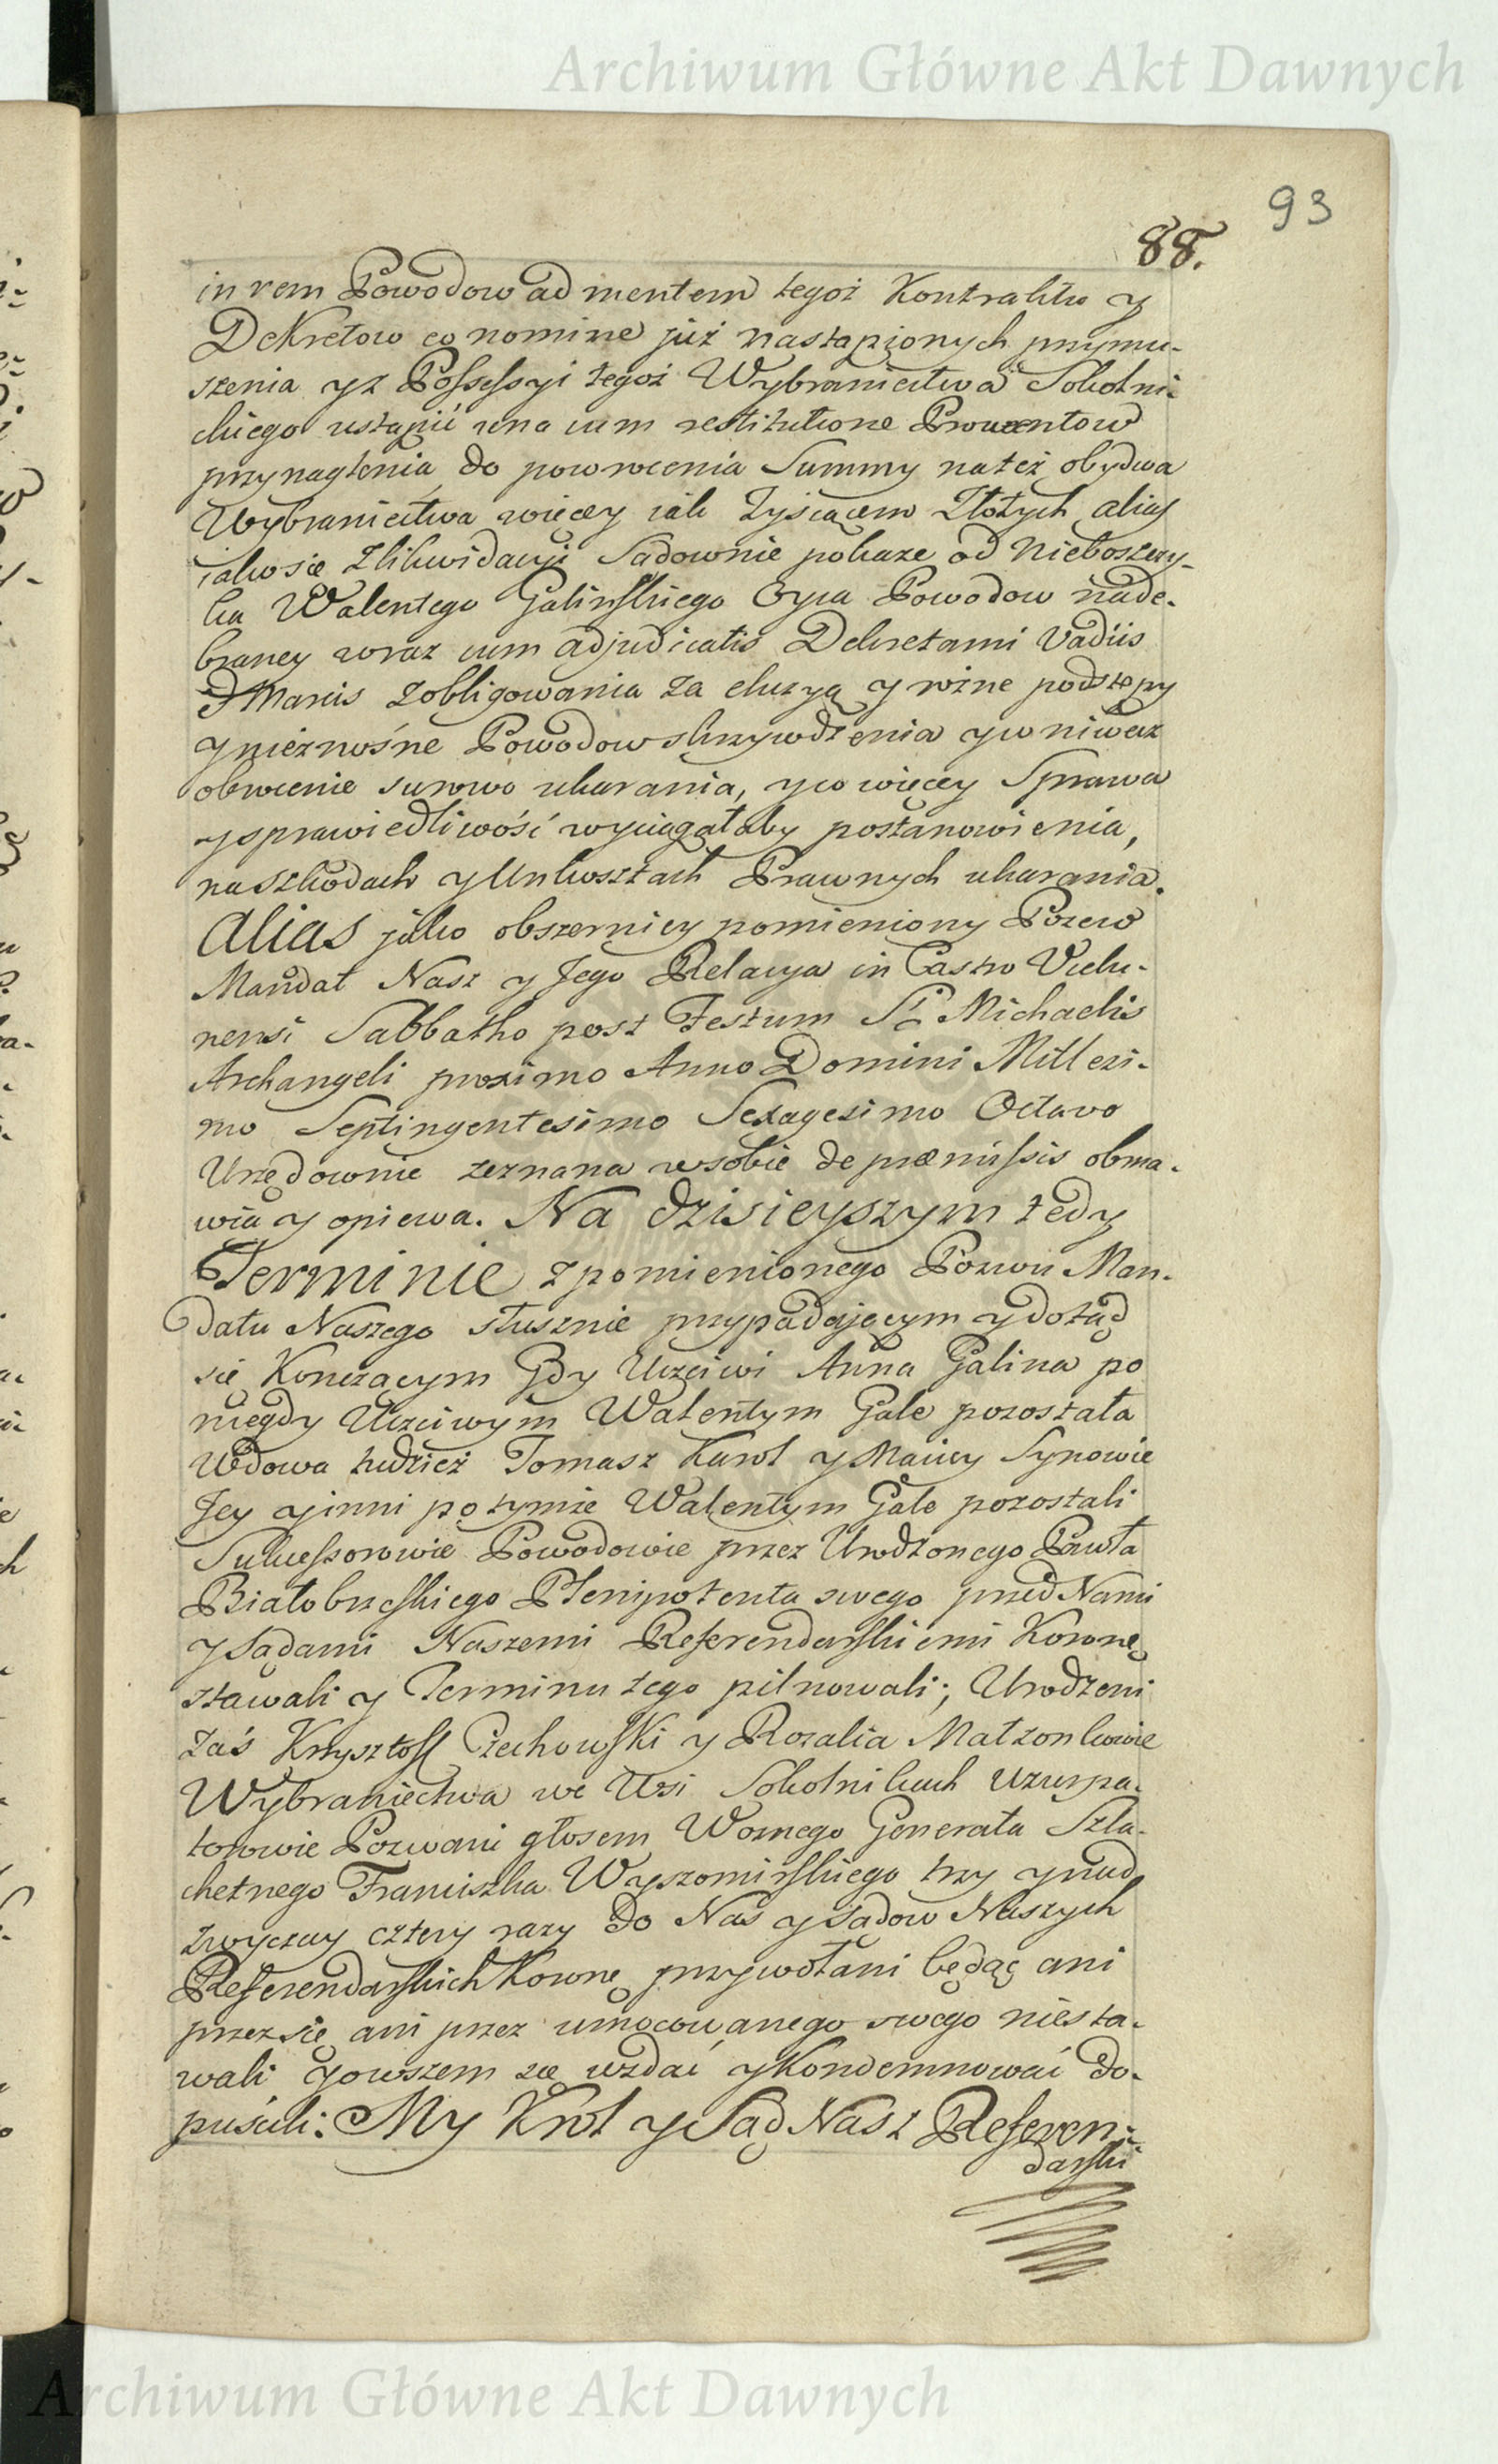 Archiwum Główne Akt Dawnych
93
88.
in rem Powodow ad mentem tegoż Kontraktu y
Dekretow eo nomine już nastąpionych przymu-
szenia yz Possessyi tegoż Wybraniectwa Sokolni-
ckiego ustąpić una cum restitutione Prowentow
przynaglenia, do powrocenia Summy na też obydwa
Wybraniectwa więcey iak Tysiącem Złotych alias
iako się z likwidacyi Sądownie pokaze od Nieboszczy-
ka Walentego Galinskiego Oyca Powodow nade-
braney wraz cum adjudicatis Dekretami Vadiis
zobligowania za eluzyą y rożne podstępy
y nieznośne Powodow skrzywdzenia y w niwecz
obrocenie surowo ukarania, y co więcey Sprawa
y sprawiedliwość wyciągałaby postanowienia,
na szkodach y Unkosztach Prawnych ukarania.
Alias jako obszerniey pomieniony Pozew
Mandat Nasz y Jego Relacya in Castro Vielu-
nensi Sabbatho post Festum Sti Michaelis
Archangeli proximo Anno Domini Millesi-
mo Septingentesimo Sexagesimo Octavo
Urzędownie zeznana w sobie de præmissis obma-
wia y opiewa. Na dzisieyszym tedy
Terminie z pomienionego Pozwu Man-
datu Naszego słusznie przypadającym y dotąd
się Konczącym Gdy Uczciwi Anna Galina po
niegdy Uczciwym Walentym Gale pozostała
Wdowa tudzież Tomasz Karol y Maciey Synowie
Jey y inni po tymże Walentym Gale pozostali
Sukcessorowie Powodowie przez Urodzonego Pawła
Białobrzeskiego Plenipotenta swego przed Nami
y Sądami Naszemi Referendarskiemi Koronę
stawali y Terminu tego pilnowali; Urodzeni
zaś Krysztoff Czechowski y Rozalia Małzonkowie
Wybraniectwa we Wsi Sokolnikach Uzurpa-
torowie Pozwani głosem Woznego Generała Szla-
chetnego Franciszka Wyszomirskiego trzy y nad
zwyczay cztery razy do Nas y Sądow Naszych
Referendarskich Koronę przywołani będąc ani
przez się ani przez umocowanego swego niesta-
wali Y owszem się wzdać y Kondemnować do-
puścili: My Krol y Sąd Nasz Referen-
darski
Archiwum Główne Akt Dawnych